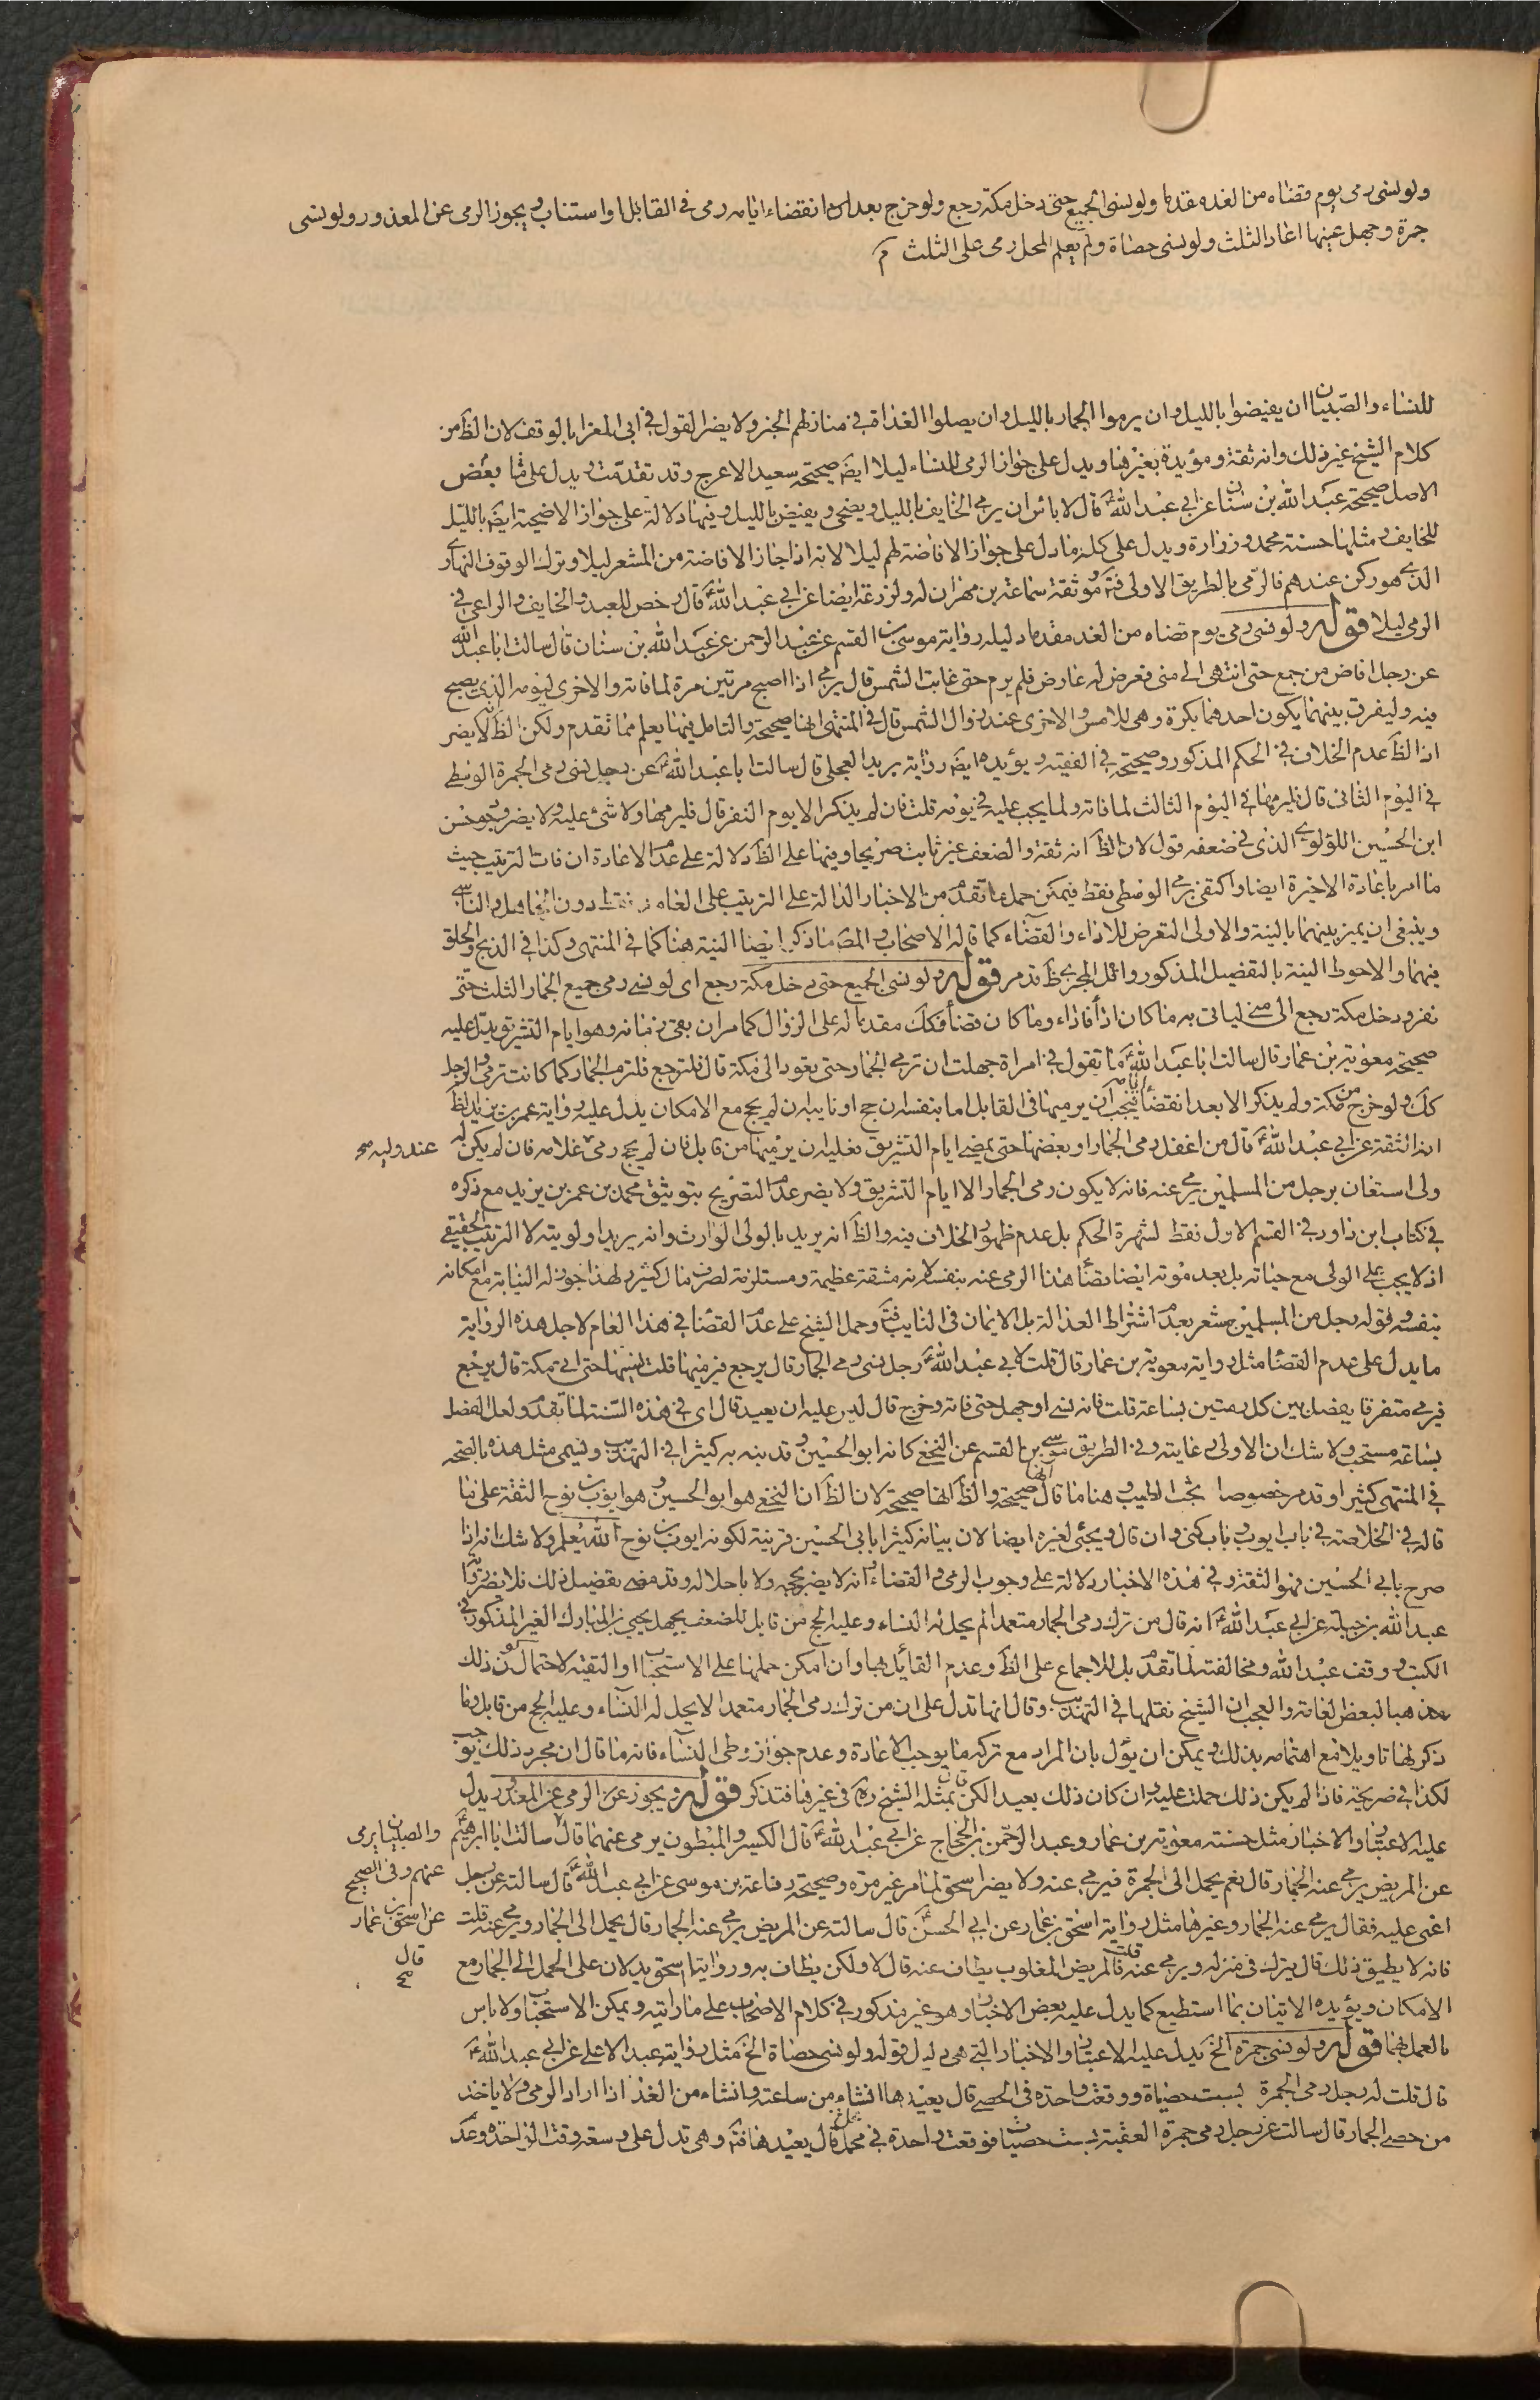 ولو نسى رمى يوم قضاه من الغد مقدما ولو نسى الجميع حتى دخل مكة رجع ولو خرج بعد انقضاء ايامه رمى فى القابل او استناب ويجوز الرمى عن المعذور ولو نسى
جمرة وجهل عينها اعاد الثلث ولو نسى حصاة ولم يعلم المحل رمى على الثلث
للنساء والصبيان ان يفيضوا بالليل وان يرموا الجمار بالليل وان يصلوا الغداة فى منازلهم الخبر ولا يضر القول فى ابى المعزا بالوقف لان الظ من
كلام الشيخ غير ذلك وانه ثقة ومؤيدة بغيرها ويدل على جواز الرمى للنساء ليلا ايضا صحيحة سعيد الاعرج وقد تقدمت ويدل على بعض
الاصل صحيحة عبد الله بن سنان عن ابى عبد الله ع قال لا باس ان يرمى الخايف بالليل ويضحى ويفيض بالليل وفيها دلالة على جواز الاضحية ايضا بالليل
للخايف ومثلها حسنة محمد وزرارة ويدل على كله ما دل على جواز الافاضة لهم ليلا لانه اذا جاز الافاضة من المشعر ليلا وترك الوقوف النهارى
الذى هو ركن عندهم فالرمى بالطريق الاولى فتم وموثقة سماعة بن مهران له ولزرعة ايضا عن ابى عبد الله ع قال رخص للعبد والخايف والراعى فى
الرمى ليلا قوله ولو نسى رمى يوم قضاه من الغد مقدما دليله رواية موسى بن القسم عن عبد الرحمن عن عبد الله بن سنان قال سالت ابا عبد الله
عن رجل افاض من جمع حتى انتهى الى منى فعرض له عارض فلم يرم حتى غابت الشمس قال يرمى اذا اصبح مرتين مرة لما فاته والاخرى ليومه الذى يصبح
فيه وليفرق بينهما يكون احدهما بكرة وهى للامس والاخرى عند زوال الشمس قال فى المنتهى انها صحيحة والتامل فيها يعلم مما تقدم ولكن الظ انه لا يضر
اذ الظ عدم الخلاف فى الحكم المذكور وصحيحة فى الفقيه ويؤيده ايضا رواية بريد العجلى قال سالت ابا عبد الله ع عن رجل نسى رمى الجمرة الوسطى
فى اليوم الثانى قال فليرمها فى اليوم الثالث لما فاته ولما يجب عليه فى يومه قلت فان لم يذكر الا يوم النفر قال فليرمها ولا شئ عليه ولا يضر وجود حسن
ابن الحسين اللؤلؤى الذى فى ضعفه قول لان الظ انه ثقة والضعف غير ثابت صريحا وفيها على الظ دلالة على عدم الاعادة ان فات الترتيب حيث
ما امر باعادة الاخيرة ايضا واكتفى برمى الوسطى فقط فيمكن حمل ما تقدم من الاخبار الدالة على الترتيب على العامد فقط دون الجاهل والناسى
وينبغى ان يميز بينهما بالنية والاولى التعرض للاداء والقضاء كما قاله الاصحاب والمص ما ذكر ايضا النية هنا كما فى المنتهى وكذا فى الذبح والحلق
فيهما والاحوط النية بالتفصيل المذكور وائل المجرى ظ تدمر قوله ولو نسى الجميع حتى دخل مكة رجع اى لو نسى رمى جميع الجمار الثلث حتى
نفر ودخل مكة رجع الى منى لياتى به ما كان اداء فاداء وما كان قضاء فكك مقدما له على الزوال كما مر ان بقى زمانه وهو ايام التشريق ويدل عليه
صحيحة معوية بن عمار قال سالت ابا عبد الله ع ما تقول فى امراة جهلت ان ترمى الجمار حتى تعود الى مكة قال فلترجع فلترم الجمار كما كانت ترمى والرجل
كك ولو خرج من مكة ولم يذكر الا بعد انقضاء ايامه فيجب ان يرميها فى القابل اما بنفسه ان حج او نايبا ان لم يحج مع الامكان يدل عليه رواية عمر بن يزيد الظ
انه الثقة عن ابى عبد الله ع قال من اغفل رمى الجمار او بعضها حتى يمضى ايام التشريق فعليه ان يرميها من قابل فان لم يحج رمى عنه وليه فان لم يكن له
ولى استعان برجل من المسلمين يرمى عنه فانه لا يكون رمى الجمار الا ايام التشريق ولا يضر عدم التصريح بتوثيق محمد بن عمر بن يزيد مع ذكره
فى كتاب ابن داود فى القسم الاول فقط لشهرة الحكم بل عدم ظهور الخلاف فيه والظ انه يريد بالولى الوارث وانه يريد اولويته لا الترتيب الحقيقى
اذ لا يجب على الولى مع حياته بل بعد موته ايضا قضاء هذا الرمى عنه بنفسه لانه مشقة عظيمة ومستلزمة لصرف مال كثير ولهذا جوز له النيابة مع امكانه
بنفسه وقوله رجل من المسلمين مشعر بعدم اشتراط العدالة بل الايمان فى النايب فتم وحمل الشيخ على عدم القضاء فى هذا العام لاجل هذه الرواية
ما يدل على عدم القضاء مثل رواية معوية بن عمار قال قلت لابى عبد الله ع رجل نسى رمى الجمار قال يرجع فيرميها قلت نسيها حتى اتى مكة قال يرجع
فيرمى متفرقا يفصل بين كل رميتين بساعة قلت فانه نسى او جهل حتى فاته وخرج قال ليس عليه ان يعيد قال اى فى هذه السنة لما تقدم ولعل الفصل
بساعة مستحب ولا شك ان الاولى رعايته وفى الطريق موسى بن القسم عن النخعى كانه ابو الحسين وقد ينبه به كثيرا فى التهذيب وتسمى مثل هذه بالصحة
فى المنتهى كثيرا وقد مر خصوصا بحث الطيب وهنا ما قال انها صحيحة والظ انها صحيحة لان الظ ان النخعى هو ابو الحسين وهو ايوب بن نوح الثقة على ما
قاله فى الخلاصة فى باب ايوب وباب كنى وان قال ويجئ لغيره ايضا لان بيانه كثيرا بابى الحسين قرينة لكونه ايوب بن نوح الله يعلم ولا شك انه اذا
صرح بابى الحسين فهو الثقة وفى هذه الاخبار دلالة على وجوب الرمى والقضاء وانه لا يضر بحجه ولا باحلاله وقد مضى تفصيل ذلك فلا يضر رواية
عبد الله بن جبلة عن ابى عبد الله ع انه قال من ترك رمى الجمار متعمدا لم يحل له النساء وعليه الحج من قابل للضعف بجهل يحيى بن المبارك الغير المذكور فى
الكتب ووقف عبد الله ومخالفته لما تقدم بل للاجماع على الظ وعدم القائل بها وان امكن حملها على الاستحباب او التقية لاحتمال كون ذلك
مذهبا لبعض العامة والعجب ان الشيخ نقلها فى التهذيب وقال انها تدل على ان من ترك رمى الجمار متعمدا لا يحل له النساء وعليه الحج من قابل وما
ذكر لها تاويلا مع اهتمامه بذلك ويمكن ان يؤل بان المراد مع تركه ما يوجب الاعادة وعدم جواز وطى النساء فانه ما قال ان مجرد ذلك يوجب
لكذا فى صريحة فاذا لم يكن ذلك حملت عليه وان كان ذلك بعيدا لكن قال بمثله الشيخ ره فى غيرها فتذكر قوله ويجوز عن الرمى عن المعذور يدل
عليه الاعتبار والاخبار مثل حسنة معوية بن عمار وعبد الرحمن بن الحجاج عن ابى عبد الله ع قال الكسير والمبطون يرمى عنهما قال سالت ابا ابرهيم
عن المريض يرمى عنه الجمار قال نعم يحمل الى الجمرة فيرمى عنه ولا يضر اسحق لما مر غير مرة وصحيحة رفاعة بن موسى عن ابى عبد الله ع قال سالته عن رجل
اغمى عليه فقال يرمى عنه الجمار وغيرها مثل رواية اسحق بن عمار عن ابى الحسن ع قال سالته عن المريض يرمى عنه الجمار قال يحمل الى الجمار ويرمى عنه قلت
فانه لا يطيق ذلك قال يترك فى منزله ويرمى عنه قلت فالمريض المغلوب يطاف عنه قال لا ولكن يطاف به وروايتا اسحق يدلان على الحمل الى الجمار مع
الامكان ويؤيده الاتيان بما استطيع كما يدل عليه بعض الاخبار وهو غير مذكور فى كلام الاصحاب على ما رايته ويمكن الاستحباب ولا باس
بالعمل بها قوله ولو نسى جمرة الخ يدل عليه الاعتبار والاخبار التى هى دليل قوله ولو نسى حصاة الخ مثل رواية عبد الاعلى عن ابى عبد الله ع
قال قلت له رجل رمى الجمرة بست حصياة ووقعت واحدة فى الحصى قال يعيدها ان شاء من ساعته وان شاء من الغد اذا اراد الرمى ولا ياخذ
من حصى الجمار قال سالت عن رجل رمى جمرة العقبة بست حصيات فوقعت واحدة فى محمل قال يعيدها فتم وهى تدل على وسعة وقت الواحدة وعد
عنه وليه صح
والصبيان يرمى
عنهم وفى الصحيح
عن اسحق بن عمار
قال
صح